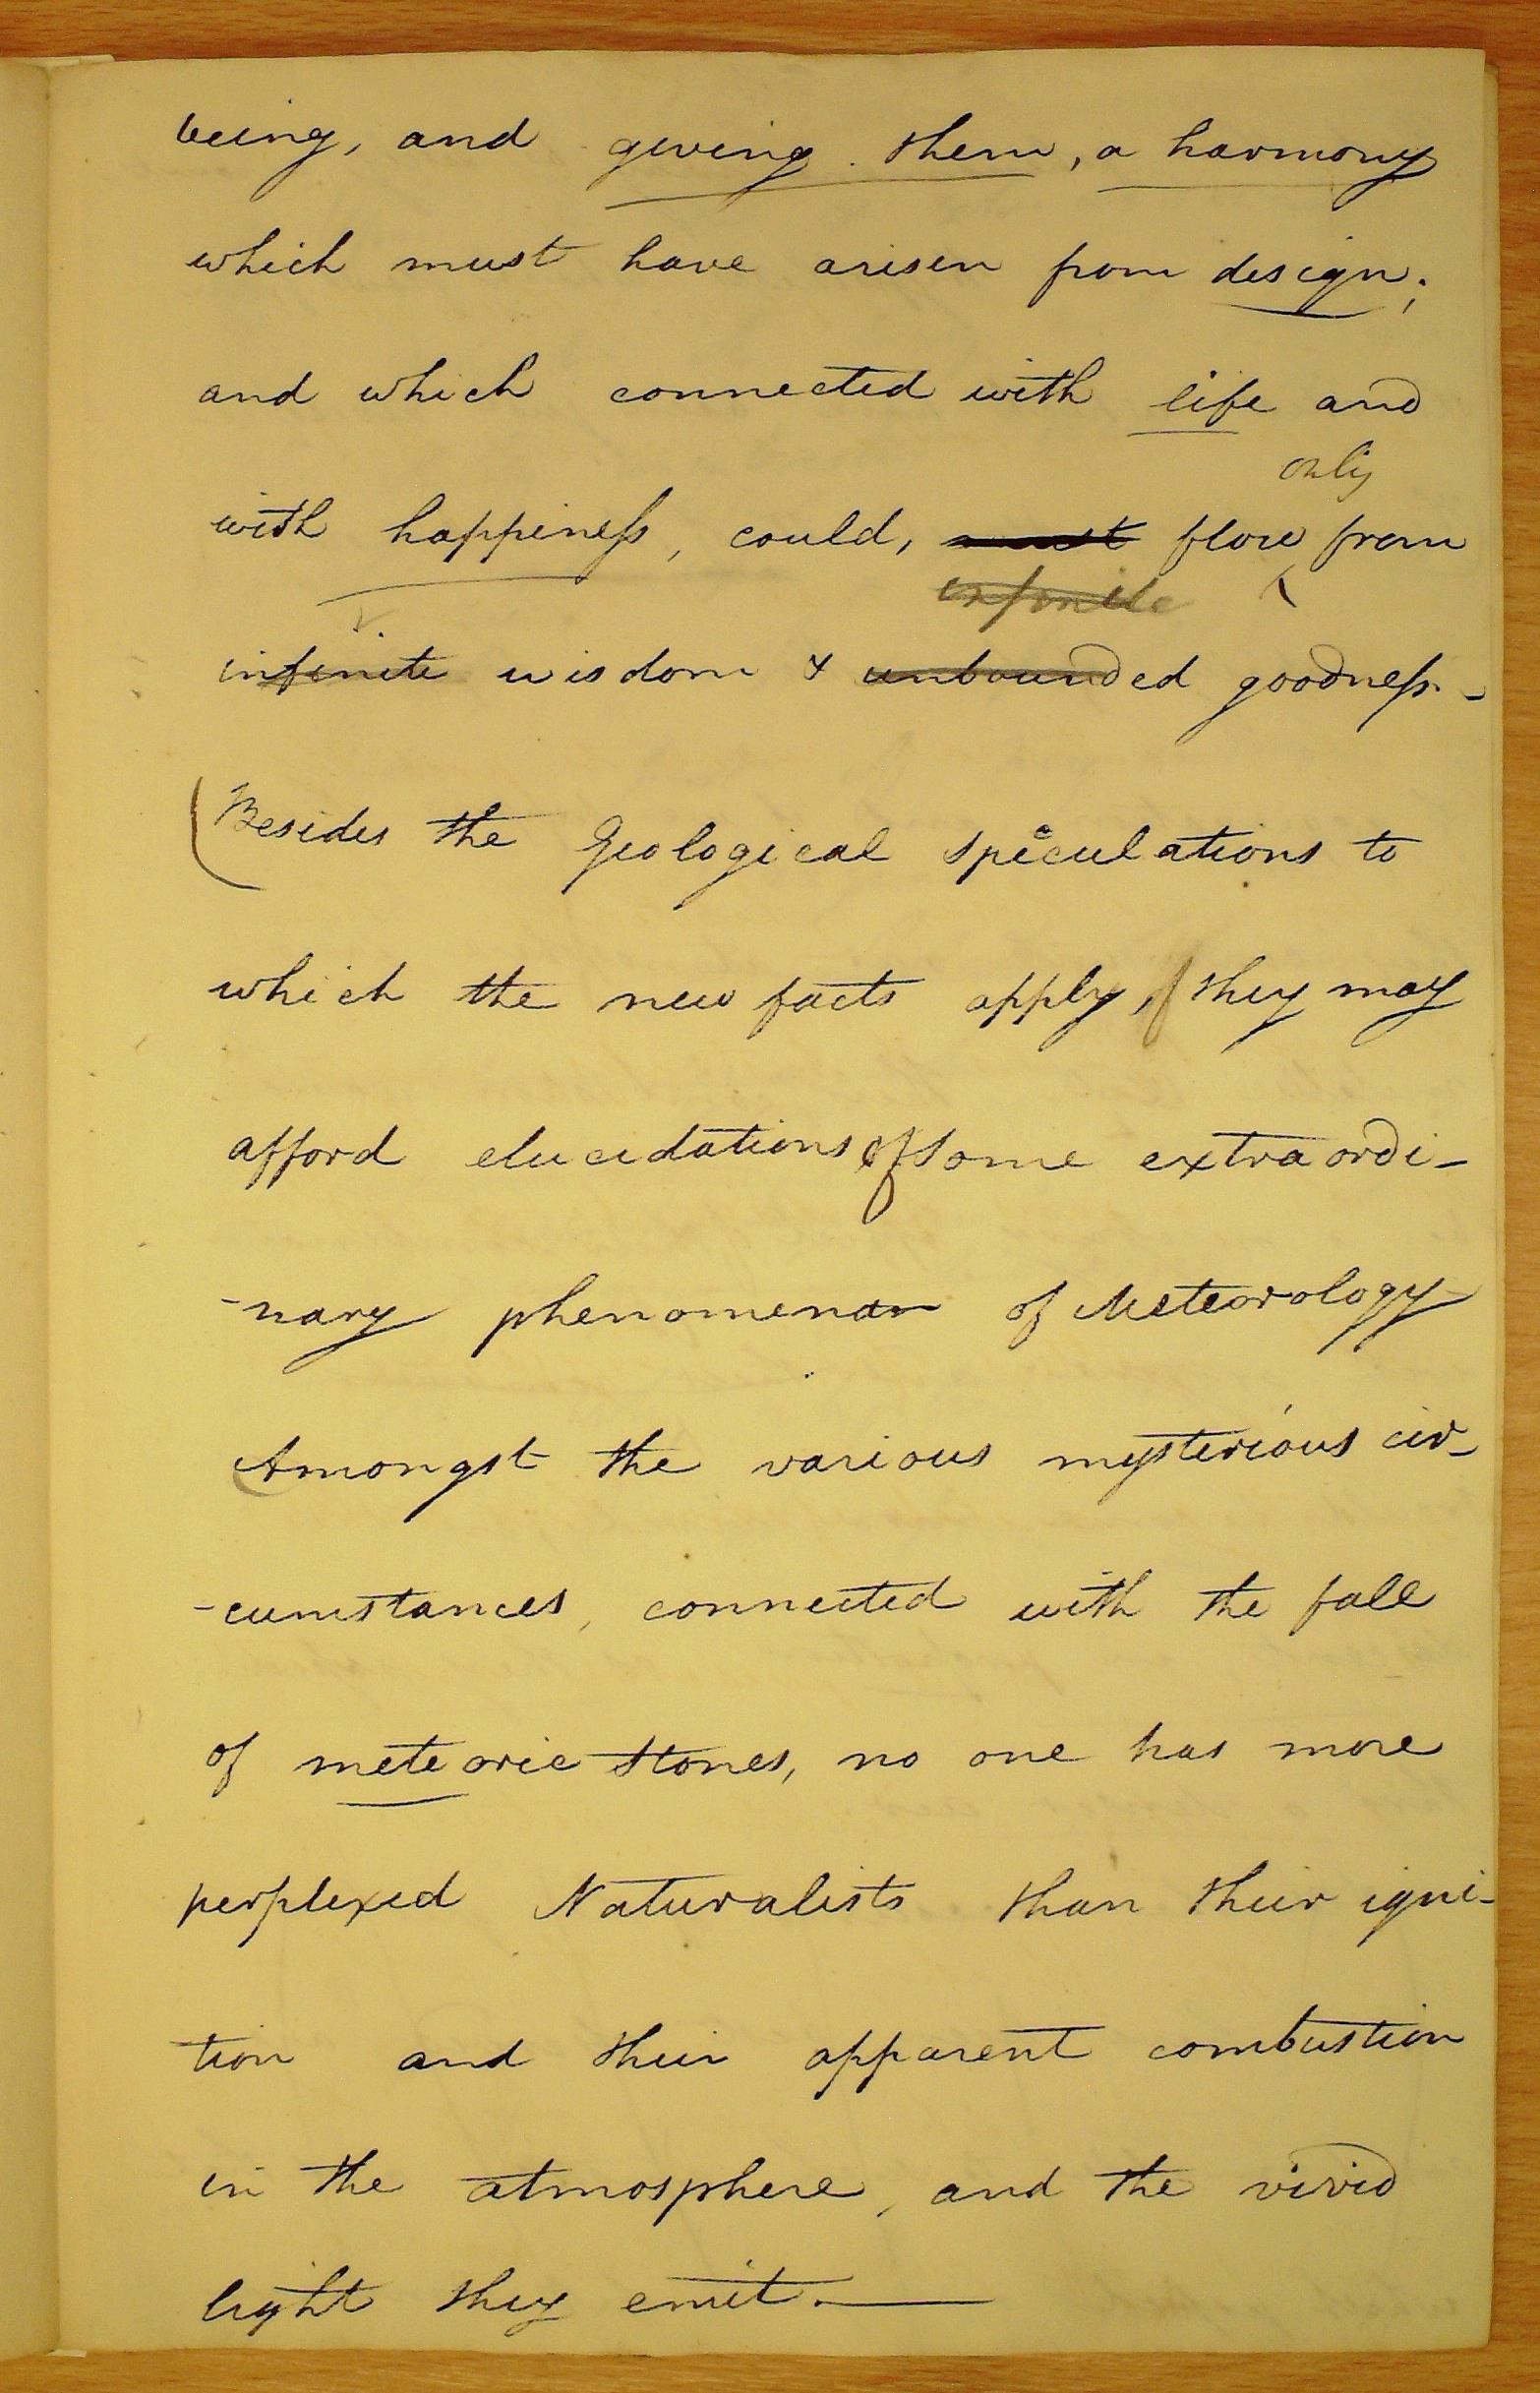 being, and giving them, a harmony
which must have arisen from design;
and which connected with life and
only
with happineſs, could, must flow from
infinite
infinite wisdom & unbounded goodneſs.-
(Besides the Geological speculations to
which the new facts apply, they may
afford elucidations of some extraordi-
-nary phenomenon of Meteorology
Amongst the various mysterious cir-
-cumstances, connected with the fall
of meteoric stones, no one has more
perplexed Naturalists than their igni-
tion and their apparent combustion
in the atmosphere, and the vivid
light they emit.—